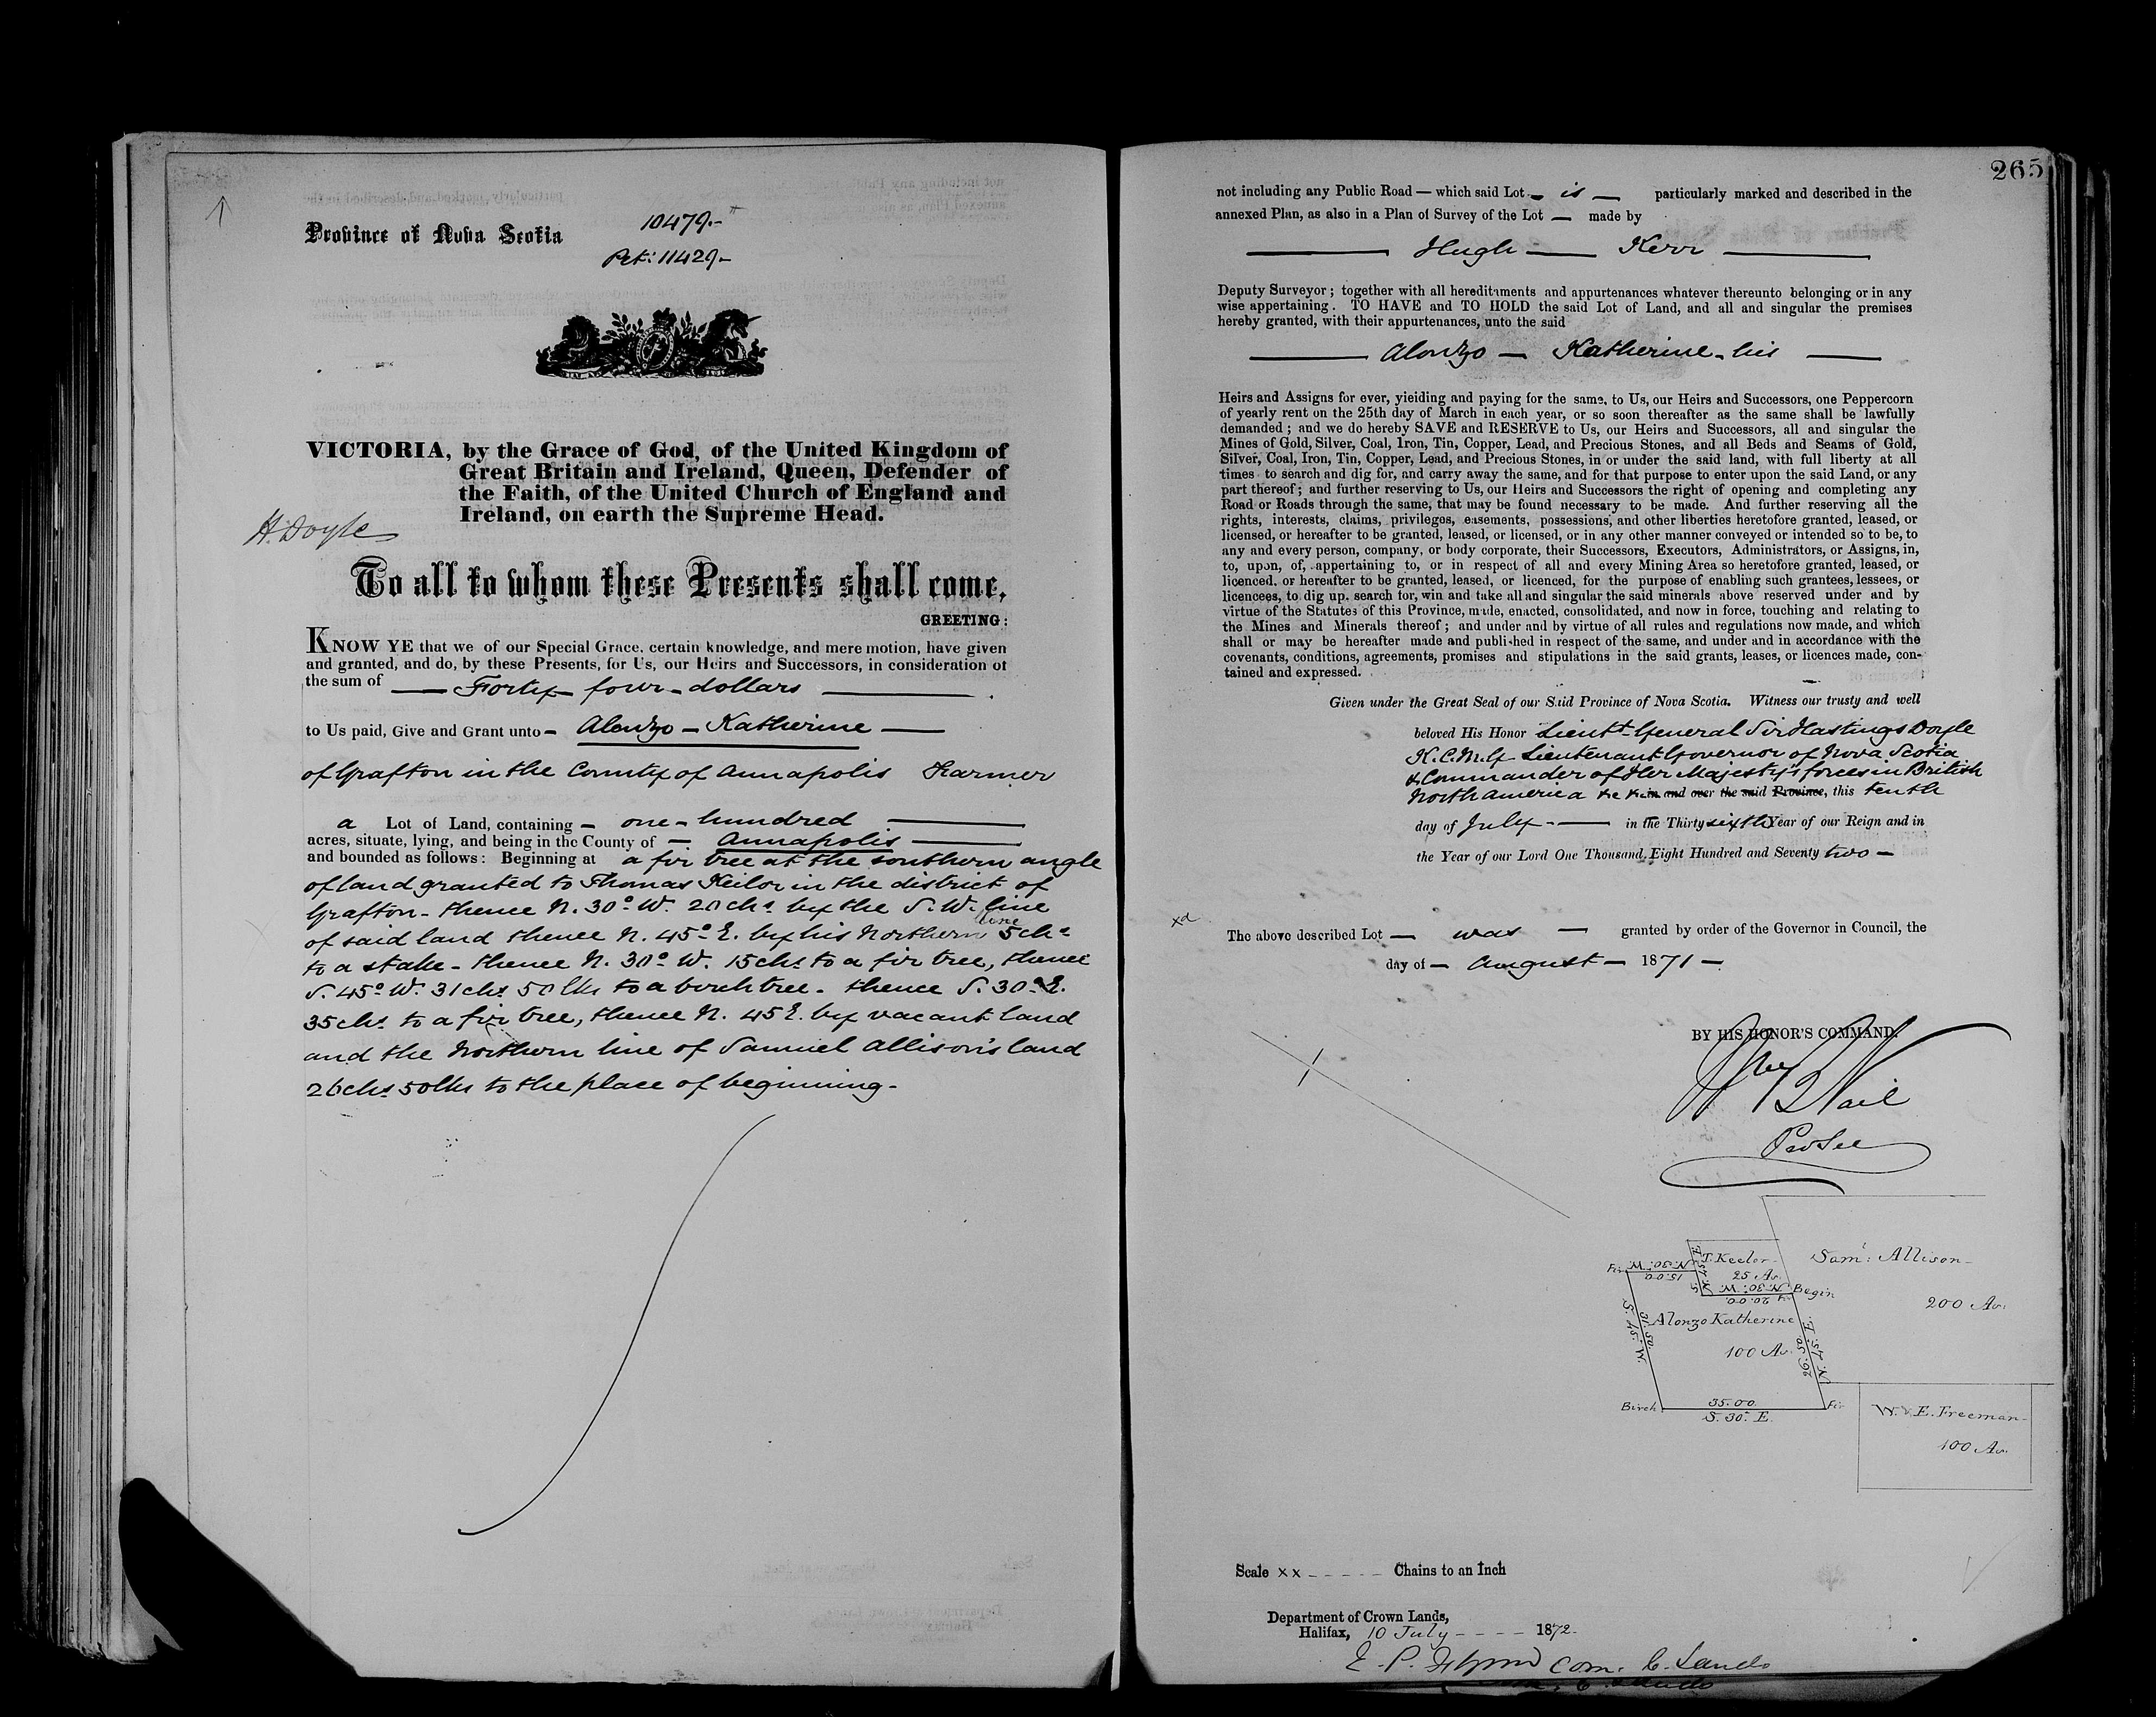 Province of Nova Scotia
10479.-
Pet: 11429.-
VICTORIA, by the Grace of God, of the United Kingdom of
Great Britain and Ireland, Queen, Defender of
the Faith, of the United Church of England and
Ireland, on earth the Supreme Head.
H. Doyle
To all to whom these Presents shall come,
GREETING:
KNOW YE that we of our Special Grace, certain knowledge, and mere motion, have given
and granted, and do, by these Presents, for Us, our Heirs and Successors, in consideration of
the sum of — Forty four dollars —
to Us paid, Give and Grant unto — Alonzo — Katherine —
of Grafton in the County of Annapolis Farmer
a Lot of Land, containing — one - hundred —
acres, situate, lying, and being in the County of — Annapolis —
and bounded as follows: Beginning at a fir tree at the southern angle
of land granted to Thomas Keilor in the district of
Grafton - thence N. 30° W. 20 chs by the S. W. line
of said land thence N. 45° E. by his Northern line 5 chs
to a stake - thence N. 30° W. 15 chs to a fir tree, thence
S. 45° W. 31 chs 50 lks to a birch tree - thence S. 30° E.
35 chs to a fir tree, thence N. 45 E. by vacant land
and the Northern line of Samuel Allison's land
26 chs 50 lks to the place of beginning -
265
not including any Public Road — which said Lot - is — particularly marked and described in the
annexed Plan, as also in a Plan of Survey of the Lot — made by
— Hugh — Kerr —
Deputy Surveyor; together with all hereditaments and appurtenances whatever thereunto belonging or in any
wise appertaining. TO HAVE and TO HOLD the said Lot of Land, and all and singular the premises
hereby granted, with their appurtenances, unto the said
— Alonzo — Katherine - his —
Heirs and Assigns for ever, yieiding and paying for the same, to Us, our Heirs and Successors, one Peppercorn
of yearly rent on the 25th day of March in each year, or so soon thereafter as the same shall be lawfully
demanded; and we do hereby SAVE and RESERVE to Us, our Heirs and Successors, all and singular the
Mines of Gold, Silver, Coal, Iron, Tin, Copper, Lead, and Precious Stones, and all Beds and Seams of Gold,
Silver, Coal, Iron, Tin, Copper, Lead, and Precious Stones, in or under the said land, with full liberty at all
times to search and dig for, and carry away the same, and for that purpose to enter upon the said Land, or any
part thereof; and further reserving to Us, our Heirs and Successors the right of opening and completing any
Road or Roads through the same, that may be found necessary to be made. And further reserving all the
rights, interests, claims, privileges, easements, possessions, and other liberties heretofore granted, leased, or
licensed, or hereafter to be granted, leased, or licensed, or in any other manner conveyed or intended so to be, to
any and every person, company, or body corporate, their Successors, Executors, Administrators, or Assigns, in,
to, upon, of, appertaining to, or in respect of all and every Mining Area so heretofore granted, leased, or
licenced, or hereafter to be granted, leased, or licenced, for the purpose of enabling such grantees, lessees, or
licencees, to dig up, search for, win and take all and singular the said minerals above reserved under and by
virtue of the Statutes of this Province, made, enacted, consolidated, and now in force, touching and relating to
the Mines and Minerals thereof; and under and by virtue of all rules and regulations now made, and which
shall or may be hereafter made and published in respect of the same, and under and in accordance with the
covenants, conditions, agreements, promises and stipulations in the said grants, leases, or licences made, con-
tained and expressed.
Given under the Great Seal of our Said Province of Nova Scotia. Witness our trusty and well
beloved His Honor Lieut- General Sir Hastings Doyle
K. C. M. G. Lieutenant Governor of Nova Scotia
& Commander of Her Majesty's forces in British
North America in and over the said Province, this tenth
day of July — in the Thirty sixth Year of our Reign and in
the Year of our Lord One Thousand Eight Hundred and Seventy two —
xd
The above described Lot — was — granted by order of the Governor in Council, the
day of — August — 1871 —
BY HIS HONOR'S COMMAND.
Wm B Vail
Pro Sec
T. Keelor
25 As.
Sam: Allison
200 As.
Fir
N. 30: W.
15.00
N. 45: E.
5.
N. 30: W.
20.00
Begin
Alonzo Katherine
100 As.
S. 45: W.
31.50
26.50
N. 45: E.
Birch
35.00
S. 30: E.
Fir
W. & E. Freeman
100 As.
Scale xx - - - - - Chains to an Inch
Department of Crown Lands,
Halifax, 10 July - - - - 1872.
E. P. Flynn Com. C. Lands